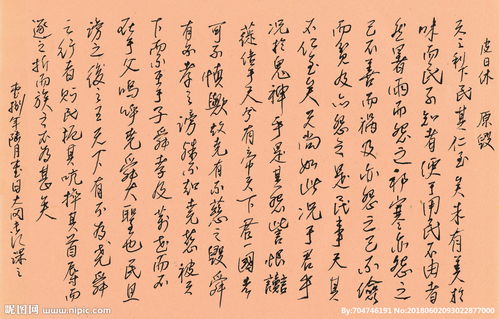 皮日休 原毁
天之利下民其仁至矣未有美于
味而民不知者便于用民不由者
然暑雨而怨之祁寒亦怨之
己不善而祸及亦怨之己不俭
而贫及亦怨之是民事天其
不仁至矣天尚如此况于君乎
况於鬼神乎是其怨訾恨讟
蓰倍于天矣有帝天下君国者
可不慎欤故尧有不慈之毁舜
有不孝之谤殊不知尧慈被天
下而不在于子舜孝及万世而不
在于父呜呼尧舜大聖也民且
谤之後之王天下有不为尧舜
之行者则民扼其吭捽其首辱而
逐之折而族之不为甚矣
壹捌年陆月壹日
昵图网 www.nipic.com
By:704746191 No:20180602093022877000